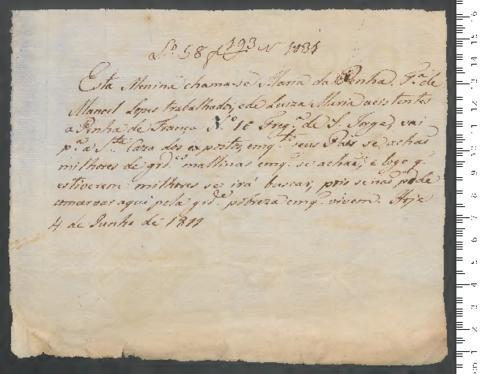 Lº 58 f 193 Nº 1031
Esta Menina chama-se Maria da Penha, Fª de
Manoel Lopes trabalhador, e de Luiza Maria asistentes
a Penha de França Nº 16 Fregª de S. Jorge, vai
pª a Stª Caza dos expostos, emqtº seus Pais se achaõ
milhores de grdes molestias emq. se achaõ, e logo q.
estiverem milhores se irá buscar, pois se naõ pode
amamar aqui pela grde pobreza emq. vivem. Hoje
4 de Junho de 1811